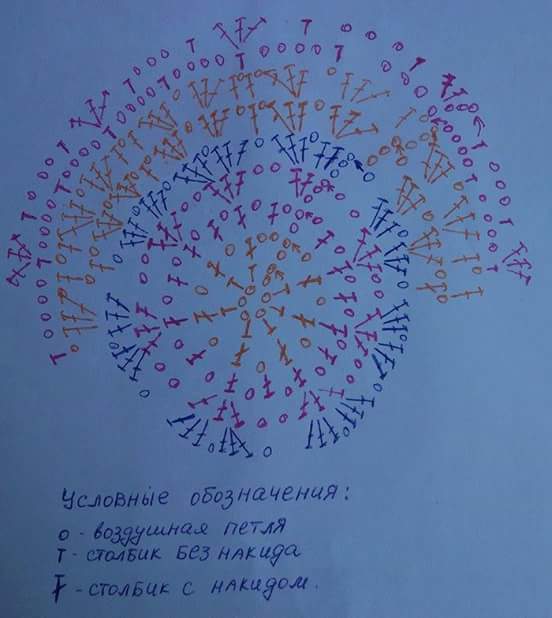 Условные обозначения:
о - воздушная петля
т - столбик без накида
Ŧ - столбик с накидом.